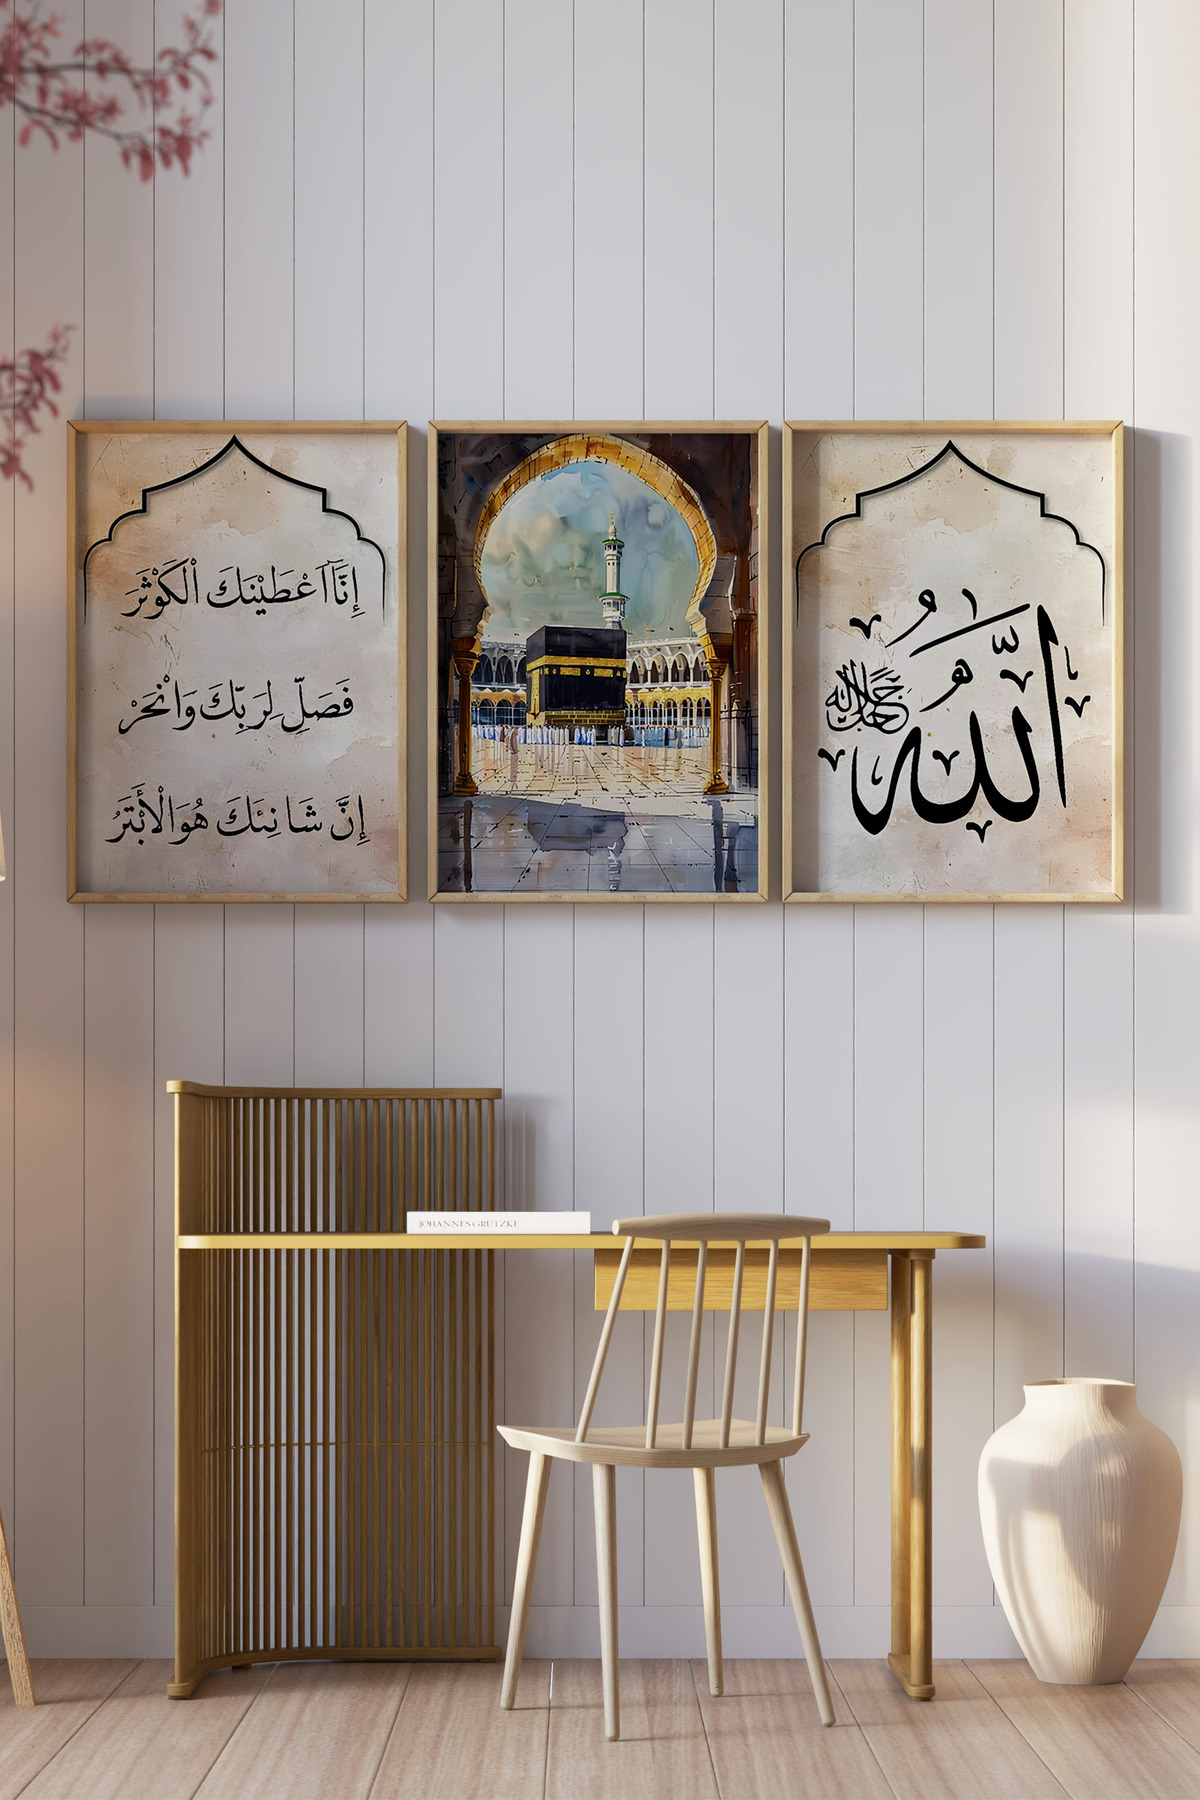 إِنَّآ أَعْطَيْنَكَ ٱلْكَوْثَرَ
فَصَلِّ لِرَبِّكَ وَٱنْحَرْ
إِنَّ شَانِئَكَ هُوَ ٱلْأَبْتَرُ
اللّٰهُ
جل جلاله
JOHANNES GRÜTZKE